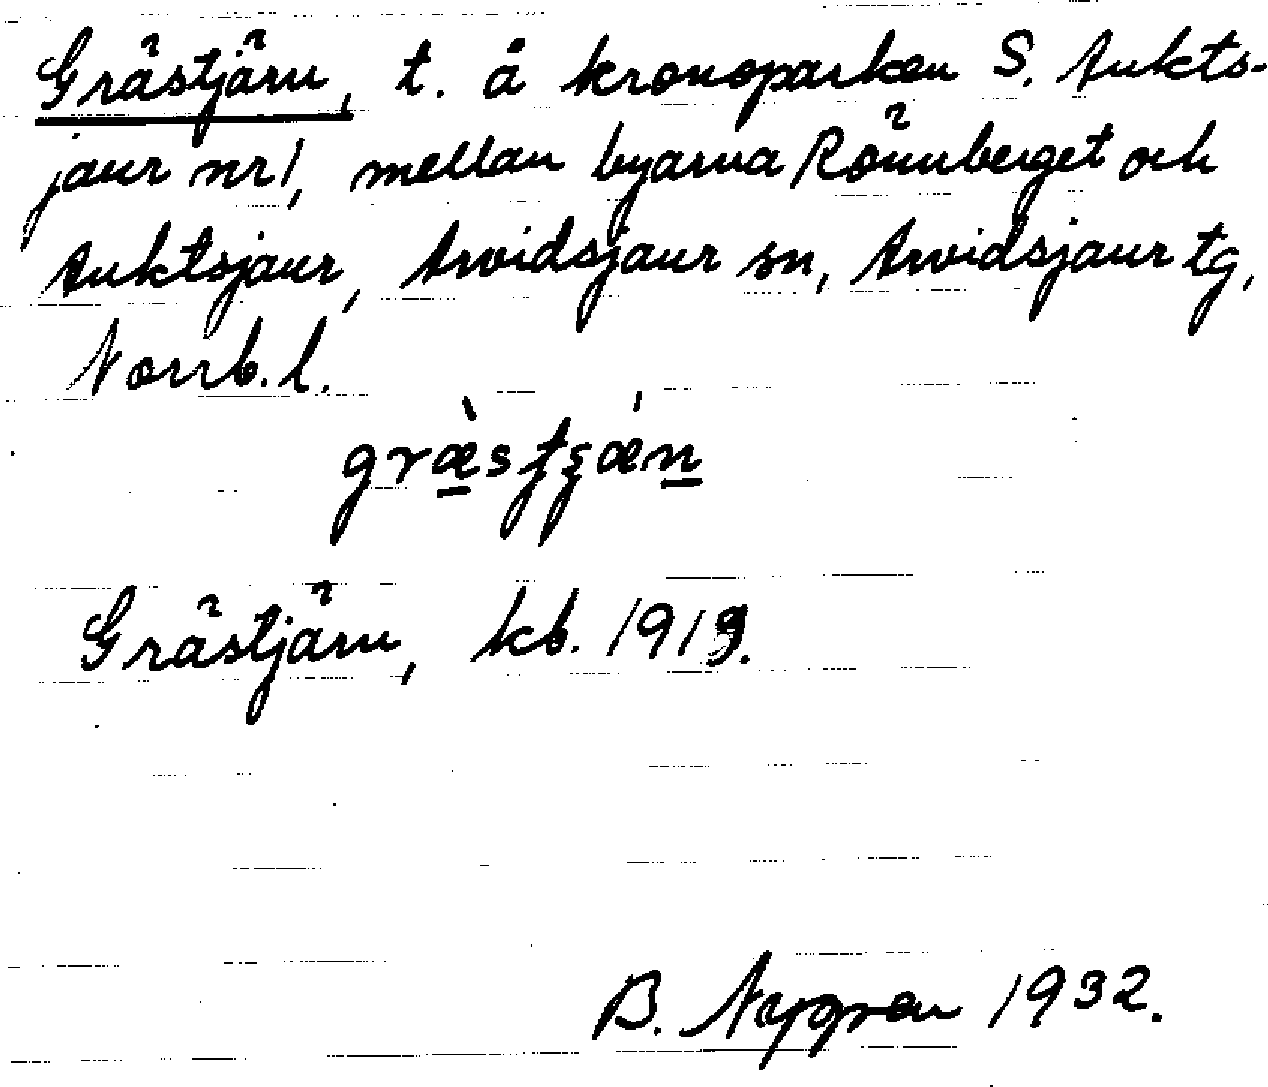 Grästjärn, t. å kronoparken S. Aukts-
jaur nr 1, mellan byarna Rönnberget och
Auktsjaur, Arvidsjaur sn, Arvidsjaur tg,
Norrb. l.
græ̀stʂæ̍n
Grästjärn, kb. 1919.
B. Nygren 1932.